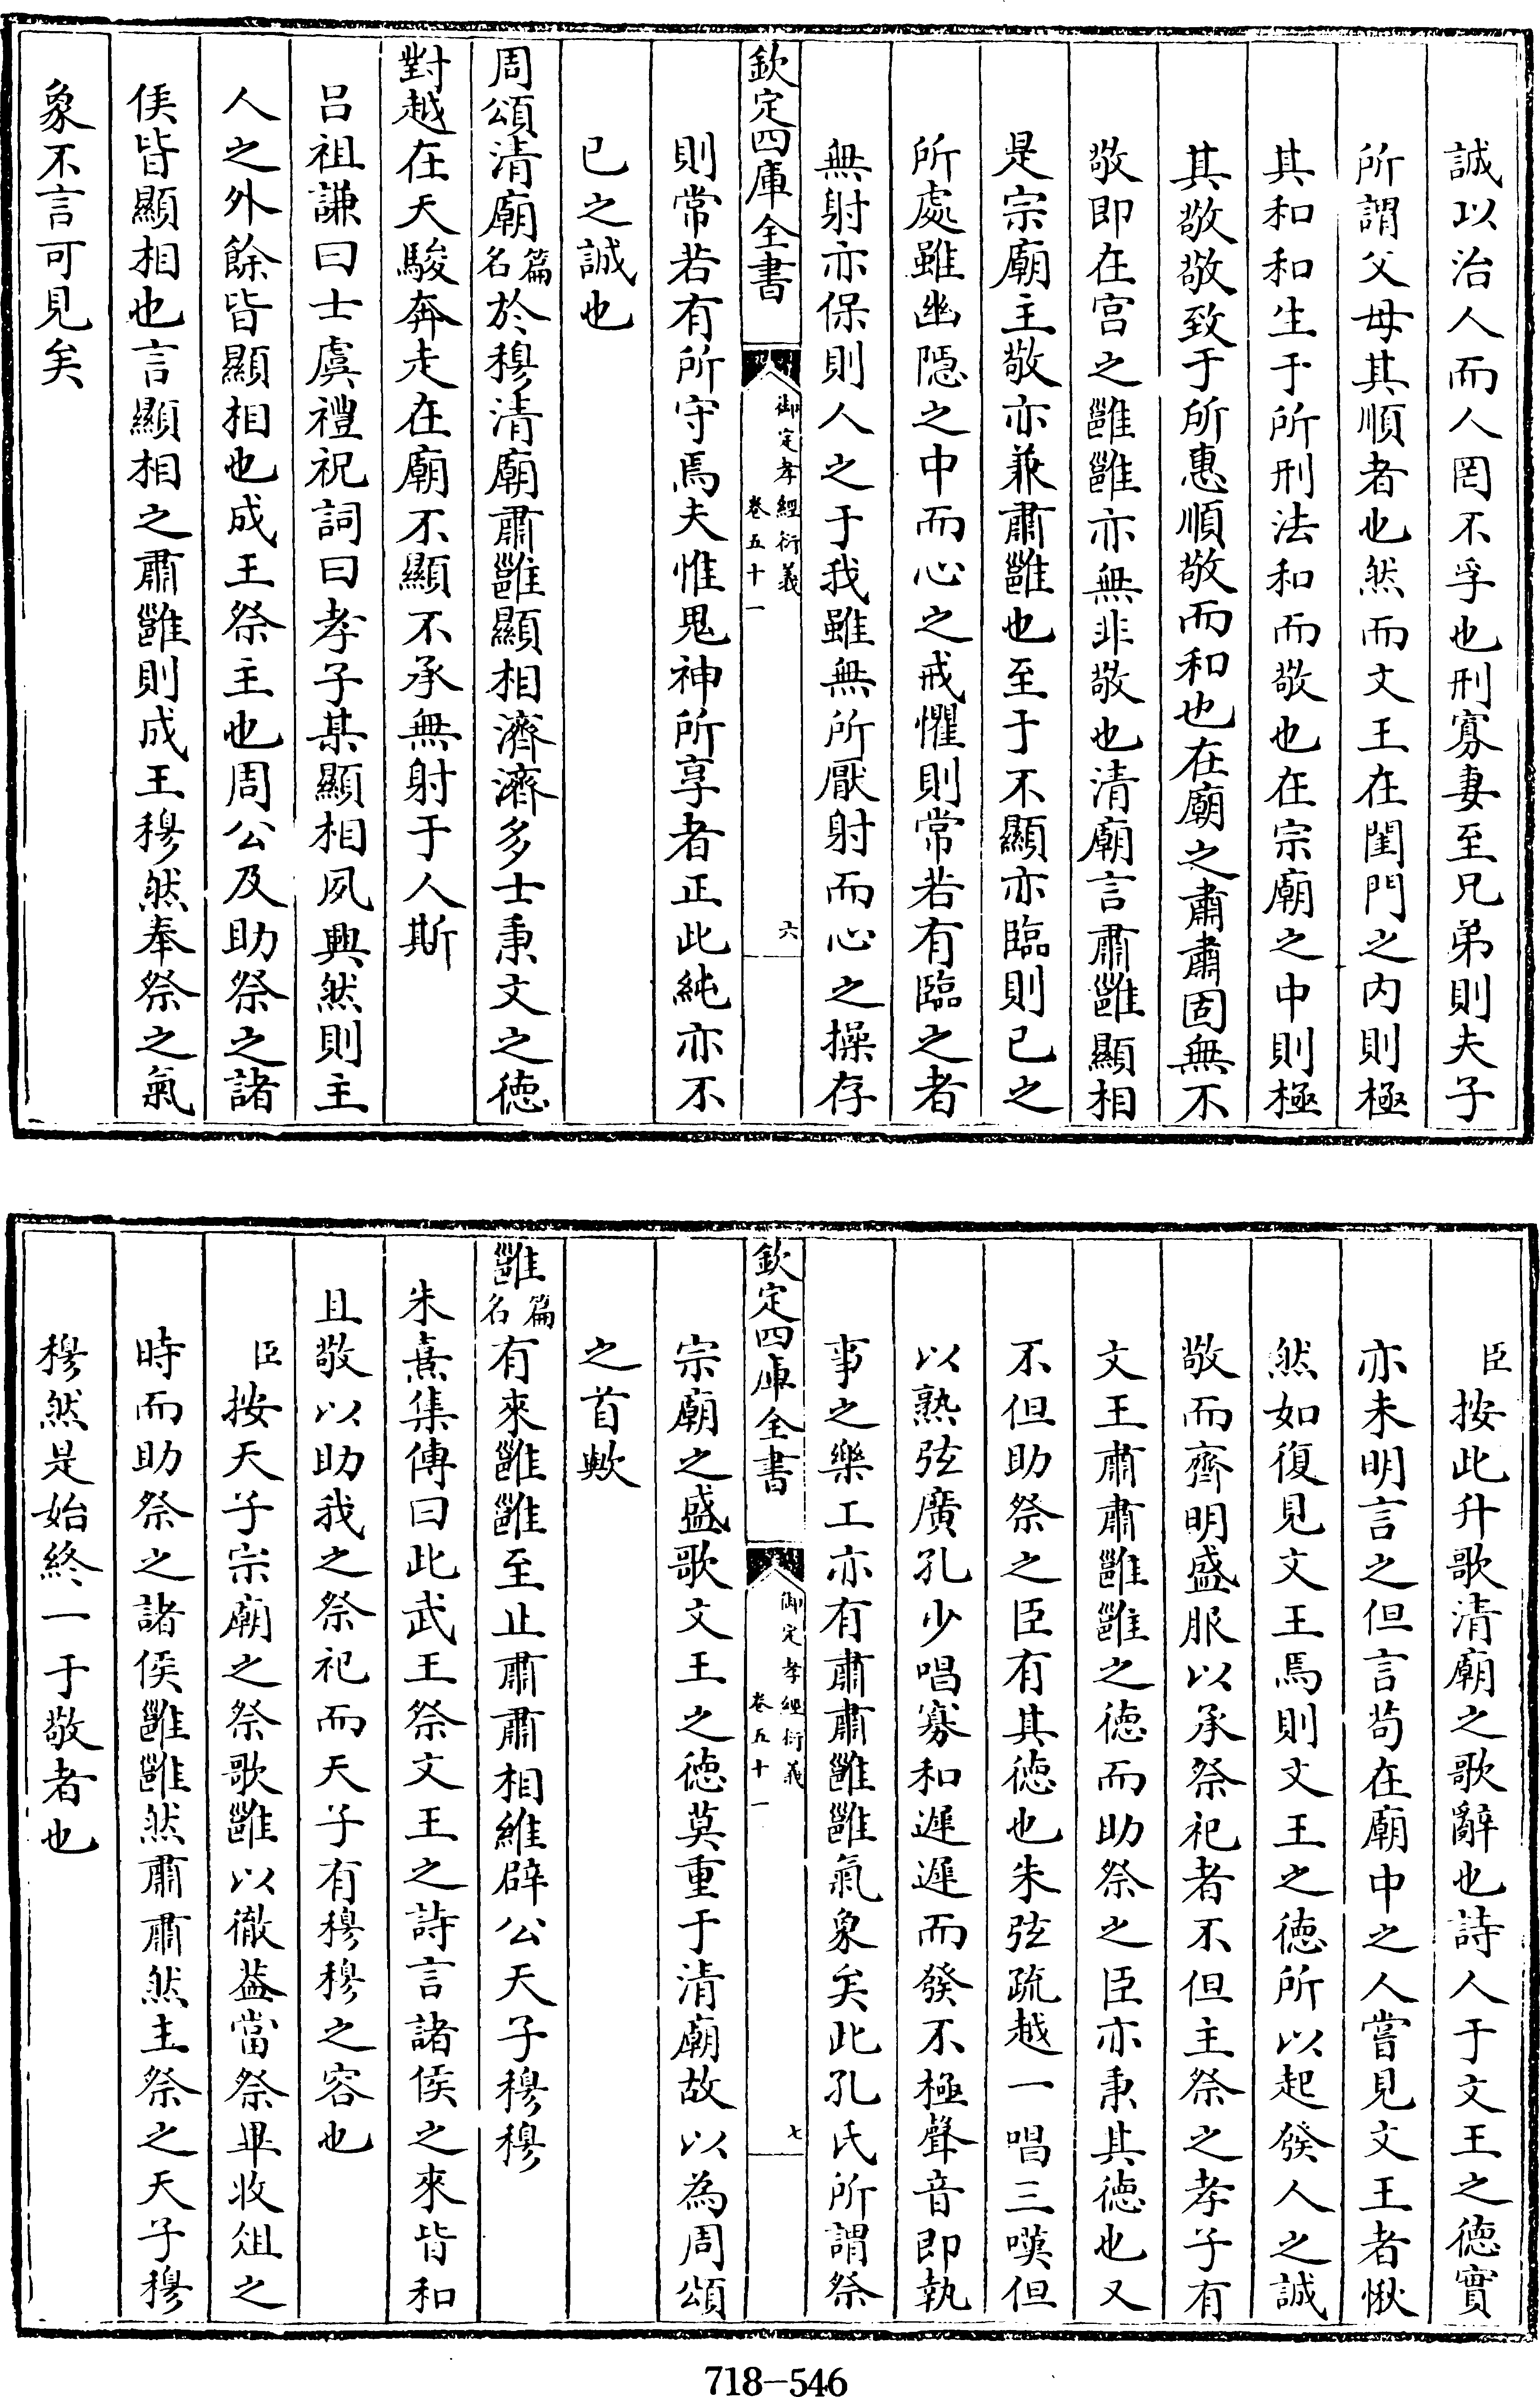 誠以治人而人罔不孚也刑寡妻至兄弟則夫子
所謂父母其順者也然而文王在閨門之内則極
其和和生于所刑法和而敬也在宗廟之中則極
其敬敬致于所惠順敬而和也在廟之肅肅固無不
敬即在宫之雝雝亦無非敬也清廟言肅雝顯相
是宗廟主敬亦兼肅雝也至于不顯亦臨則已之
所處雖幽隠之中而心之戒懼則常若有臨之者
無射亦保則人之于我雖無所厭射而心之操存
欽定四庫全書
御定孝經衍義
卷五十一
六
則常若有所守焉夫惟鬼神所享者正此純亦不
已之誠也
周頌清廟篇名於穆清廟肅雝顯相濟濟多士秉文之徳
對越在天駿奔走在廟不顯不承無射于人斯
吕祖謙曰士虞禮祝詞曰孝子某顯相夙興然則主
人之外餘皆顯相也成王祭主也周公及助祭之諸
侯皆顯相也言顯相之肅雝則成王穆然奉祭之氣
象不言可見矣
臣按此升歌清廟之歌辭也詩人于文王之徳實
亦未明言之但言苟在廟中之人嘗見文王者愀
然如復見文王焉則文王之徳所以起發人之誠
敬而齊明盛服以承祭祀者不但主祭之孝子有
文王肅肅雝雝之徳而助祭之臣亦秉其徳也又
不但助祭之臣有其徳也朱弦疏越一唱三嘆但
以熟弦廣孔少唱寡和遲遲而發不極聲音即執
事之樂工亦有肅肅雝雝氣象矣此孔氏所謂祭
欽定四庫全書
御定孝經衍義
卷五十一
七
宗廟之盛歌文王之徳莫重于清廟故以為周頌
之首歟
雝篇名有來雝雝至止肅肅相維辟公天子穆穆
朱熹集傳曰此武王祭文王之詩言諸侯之來皆和
且敬以助我之祭祀而天子有穆穆之容也
臣按天子宗廟之祭歌雝以徹葢當祭畢收俎之
時而助祭之諸侯雝雝然肅肅然主祭之天子穆
穆然是始終一于敬者也
718-546